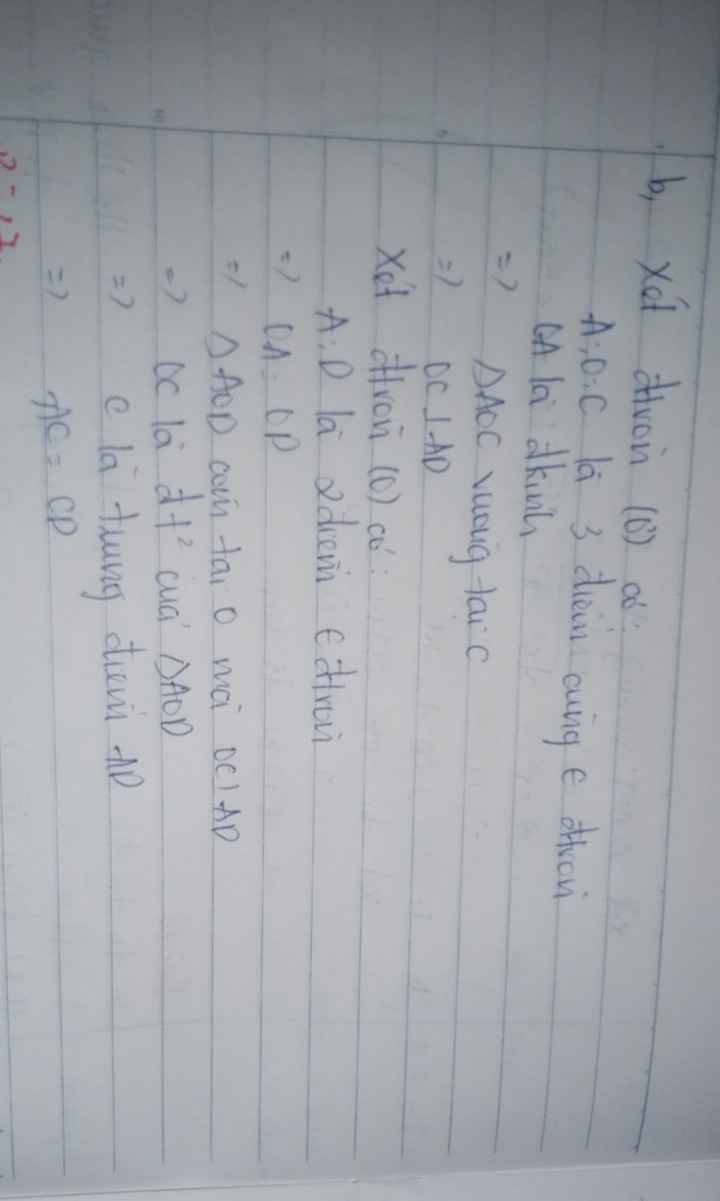 b, Xét đtròn (O') có:
A; O; C là 3 điểm cùng ∈ đtròn
OA là đkính
=> ΔAOC vuông tại C
=> OC ⊥ AD
Xét đtròn (O) có:
A; D là 2 điểm ∈ đtròn
=> OA = OD
=> ΔAOD cân tại O mà OC ⊥ AD
=> OC là đt² của ΔAOD
=> C là trung điểm AD
=> AC = CD